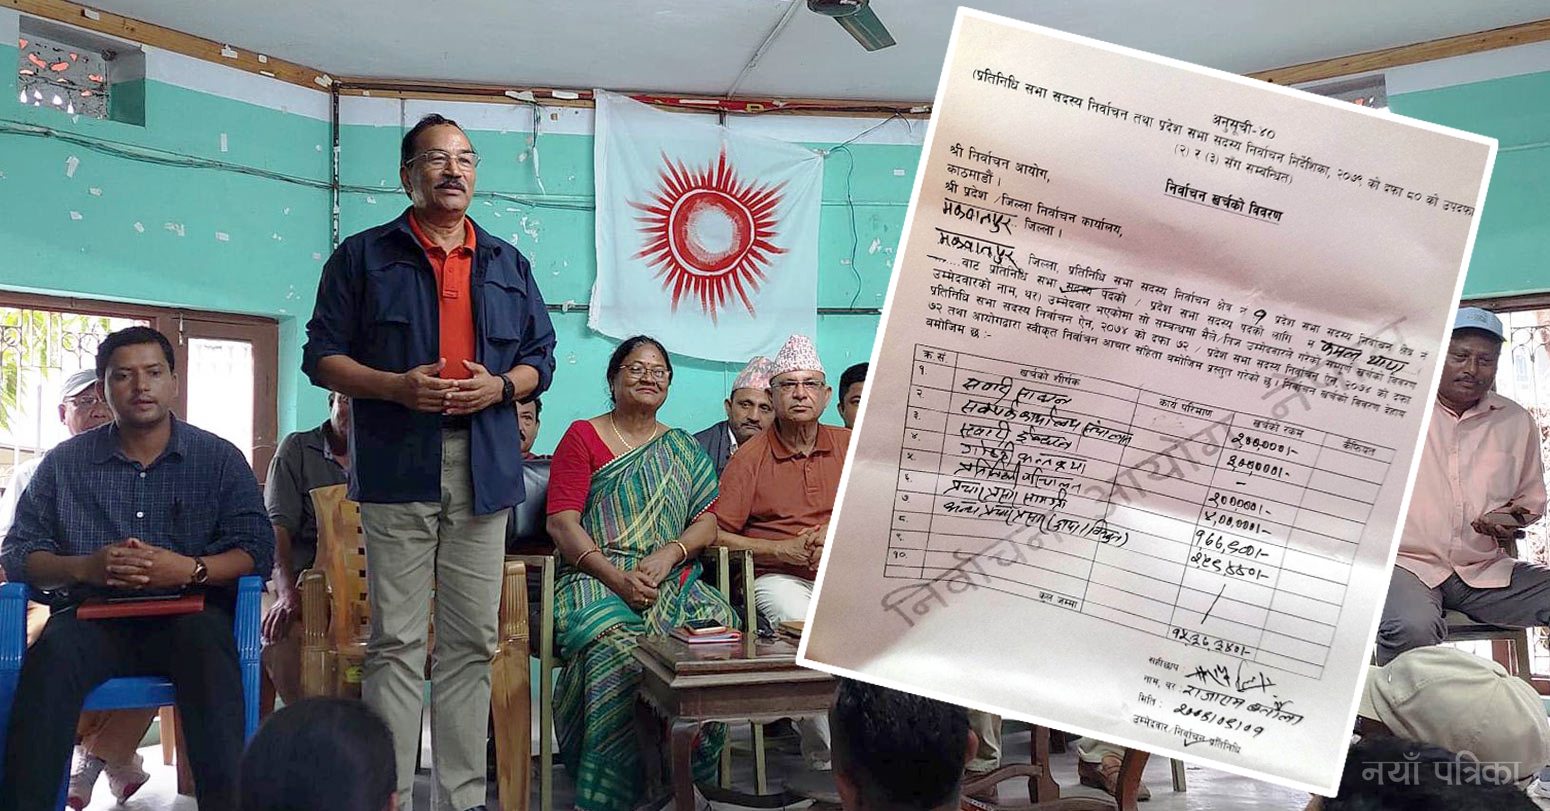 अनुसूची-४०
(प्रतिनिधि सभा सदस्य निर्वाचन तथा प्रदेश सभा सदस्य निर्वाचन निर्देशिका, २०७९ को दफा ८० को उपदफा
(२) र (३) सँग सम्बन्धित)
निर्वाचन खर्चको विवरण
श्री निर्वाचन आयोग,
काठमाडौं ।
श्री प्रदेश /जिल्ला निर्वाचन कार्यालय,
मकवानपुर जिल्ला ।
मकवानपुर जिल्ला, प्रतिनिधि सभा सदस्य निर्वाचन क्षेत्र नं १ प्रदेश सभा सदस्य निर्वाचन क्षेत्र नं
बाट प्रतिनिधि सभा सदस्य पदको / प्रदेश सभा सदस्य पदको लागि म कमल थापा
उम्मेदवारको नाम, थर) उम्मेदवार भएकोमा सो सम्बन्धमा मैले/निज उम्मेदवारले गरेको सम्पूर्ण खर्चको विवरण
प्रतिनिधि सभा सदस्य निर्वाचन ऐन, २०७४ को दफा ७२ / प्रदेश सभा सदस्य निर्वाचन ऐन, २०७४ को दफा
७२ तथा आयोगद्वारा स्वीकृत निर्वाचन आचार संहिता बमोजिम प्रस्तुत गरेको छु । निर्वाचन खर्चको विवरण देहाय
बमोजिम छ :-
क्र सं खर्चको शीर्षक कार्य परिमाण खर्चको रकम कैफियत
१ सवारी साधन
२ सम्पर्क कार्यालय संचालन
३. सवारी ईन्धन -
४.
५
६. प्रचार प्रसार सामाग्री
७ अन्य प्रचार प्रसार
८.
९.
१०.
कुल जम्मा
सहीछाप
नाम, थर : राजाराम बर्तौला
मिति :
उम्मेदवार/निर्वाचन प्रतिनिधि
निर्वाचन आयोग
नयाँ पत्रिका